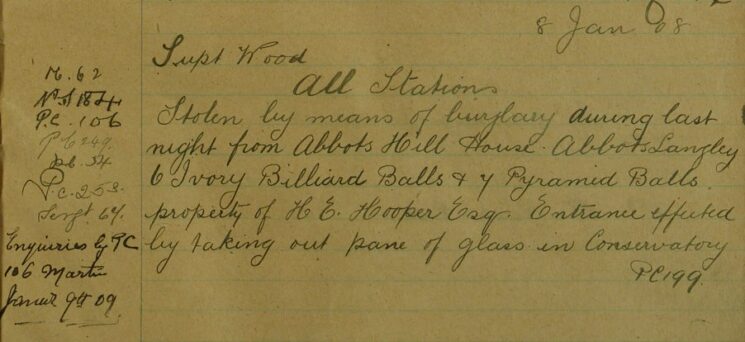 8 Jan 08
Supt Wood
All Stations
Stolen by means of burglary during last
night from Abbots Hill House. Abbots Langley
6 Ivory Billiard Balls & 7 Pyramid Balls.
property of H E. Hooper Esq. Entrance effected
by taking out pane of glass in Conservatory
PC199.
M. 62
184
P.C. 106
PC 249.
P.C. 54
P.C. 258.
Sergt 64.
Enquiries by PC
106 Martin
9th 09.